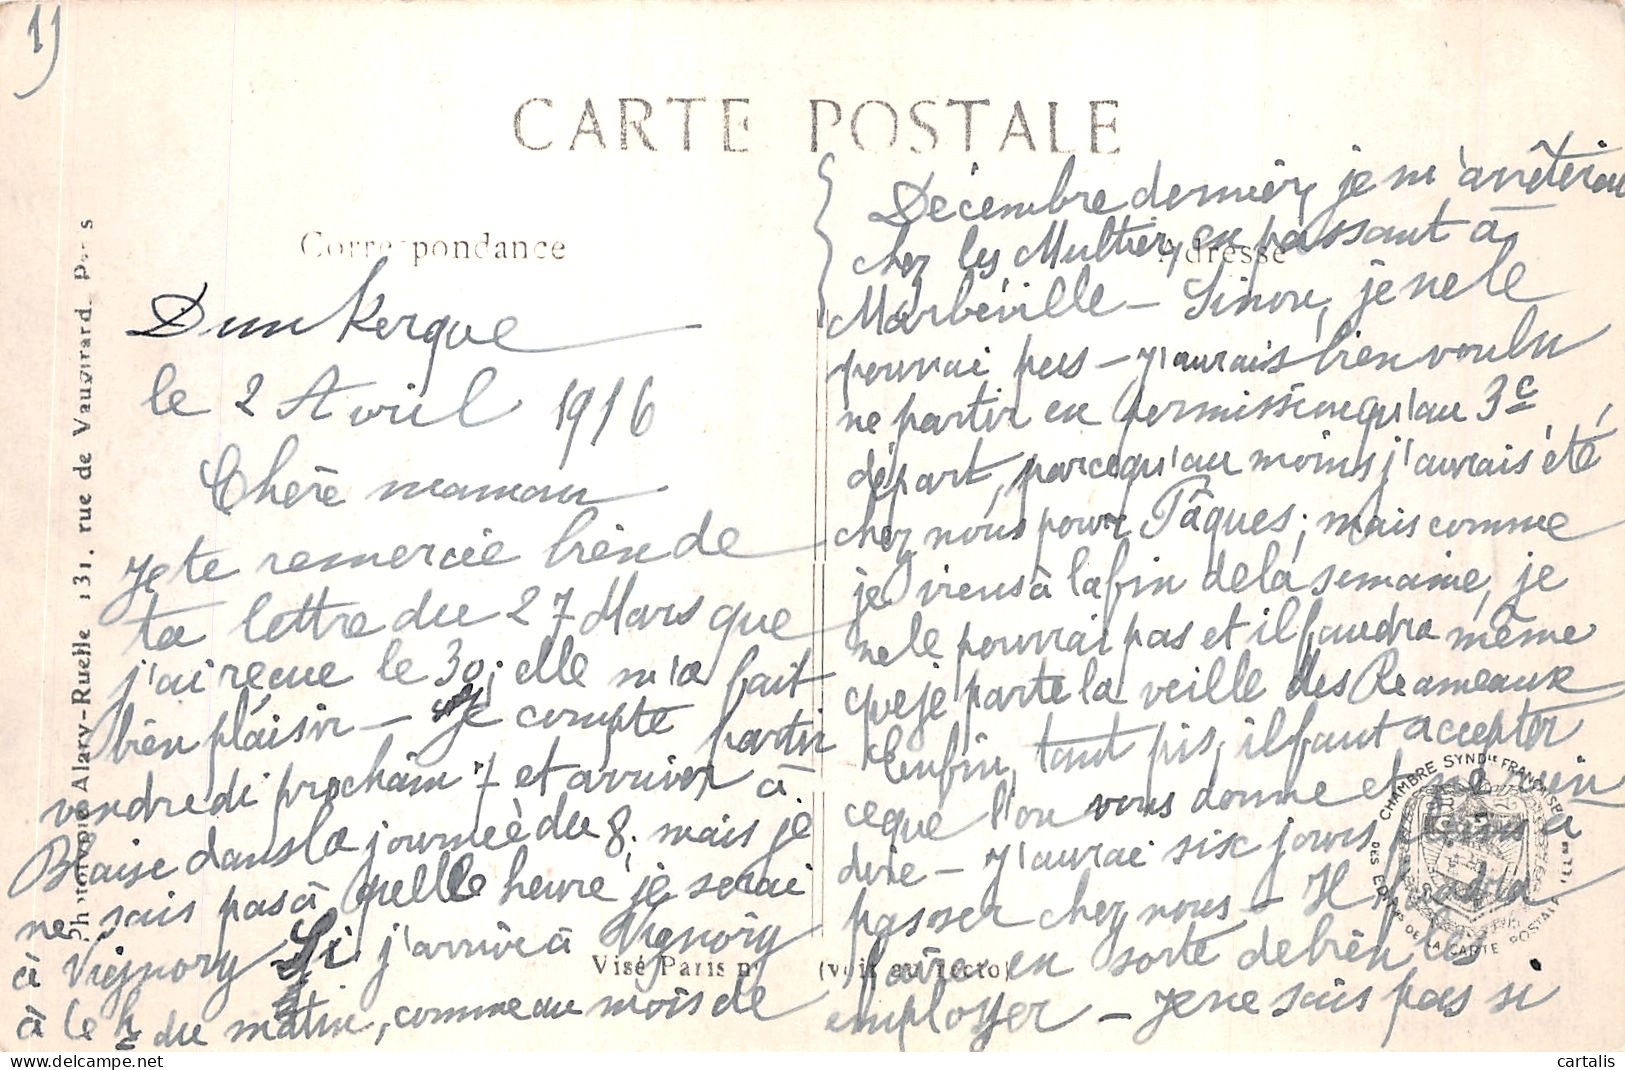 1)
CARTE POSTALE
Correspondance
Adresse
Dunkerque
le 2 Avril 1916
Chère maman
Je te remercie bien de
ta lettre du 27 Mars que
j'ai reçue le 30; elle m'a fait
bien plaisir – Je compte partir
vendredi prochain 7 et arriver à
Blaise dans la journée du 8; mais je
ne sais pas à quelle heure je serai
à Vignory Si j'arrive à Vignory
à 6 h du matin, comme au mois de
Décembre dernier, je m'arrêterai
chez les Multier, en passant à
Marbéville – Sinon, je ne le
pourrai pas – J'aurais bien voulu
ne partir en permission qu'au 3e
départ, parce qu'au moins j'aurais été
chez nous pour Pâques; mais comme
je viens à la fin de la semaine, je
ne le pourrai pas et il faudra même
que je parte la veille des Rameaux
Enfin, tant pis, il faut accepter
ce que l'on vous donne et ne rien
dire – J'aurai six jours pleins à
passer chez nous – Il faudra
faire en sorte de bien les
employer – Je ne sais pas si
Phototypie Alary-Ruelle 131, rue de Vaugirard. Paris
Visé Paris n
(voir au recto)
CHAMBRE SYNDle FRANÇAISE
DES EDITrs DE LA CARTE POSTALE
cartalis